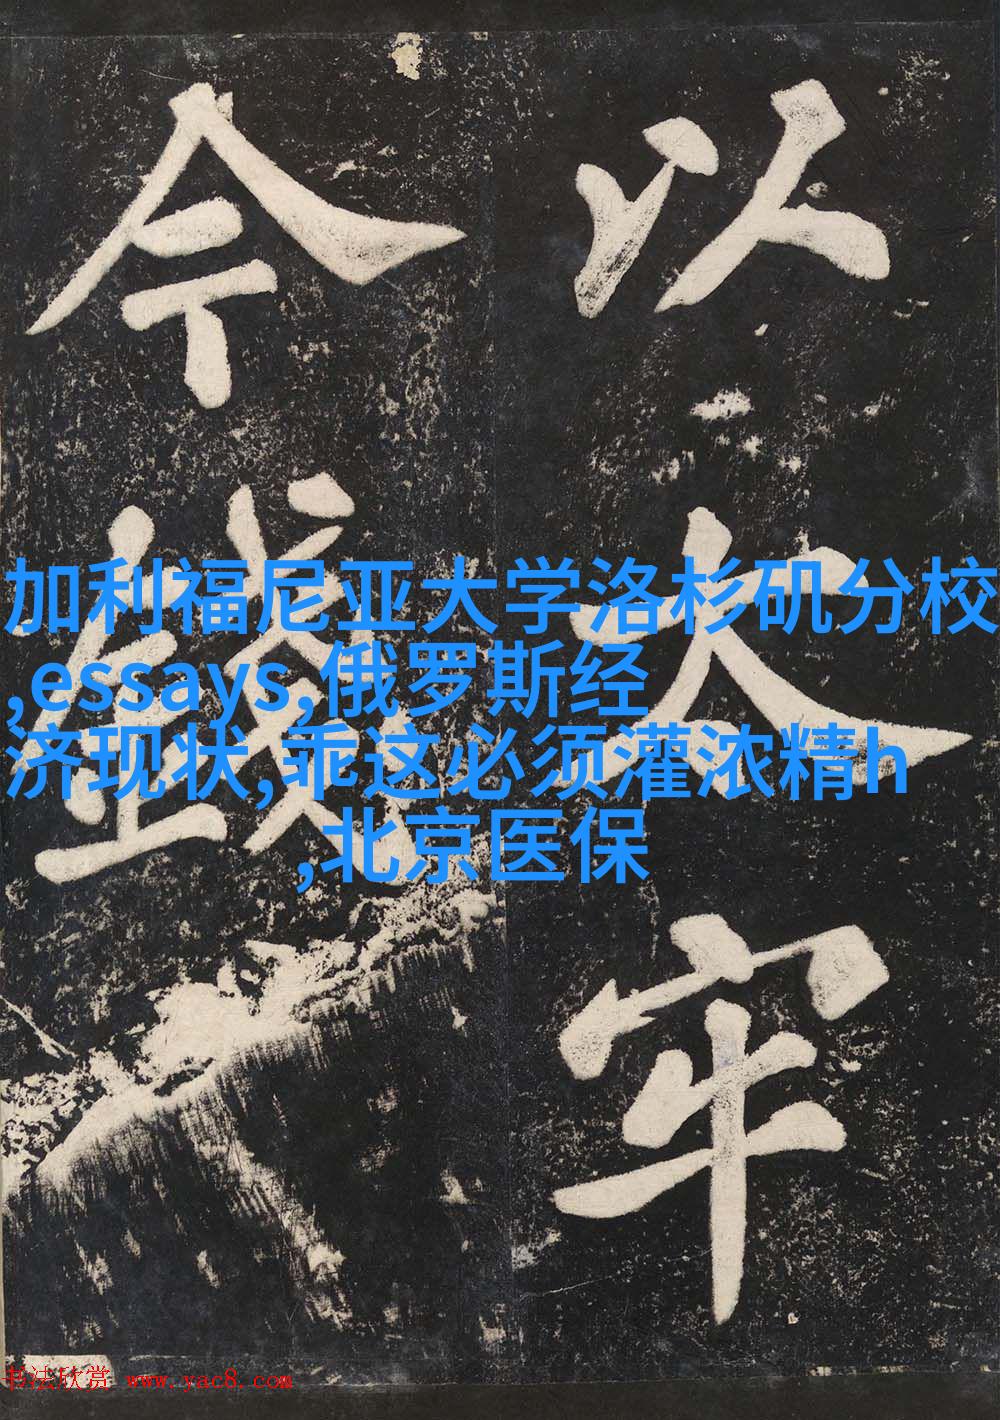 以太牢
今錢
加利福尼亚大学洛杉矶分校
,essays,俄罗斯经
济现状,乖这必须灌浓精h
,北京医保
书法欣赏 www.yac8.com